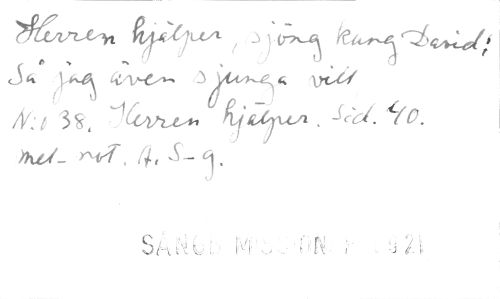 Herren hjälper, sjöng kung David;
Så jag även sjunga vill
N:o 38. Herren hjälper. Sid. 40.
mel- not. A. S-g.